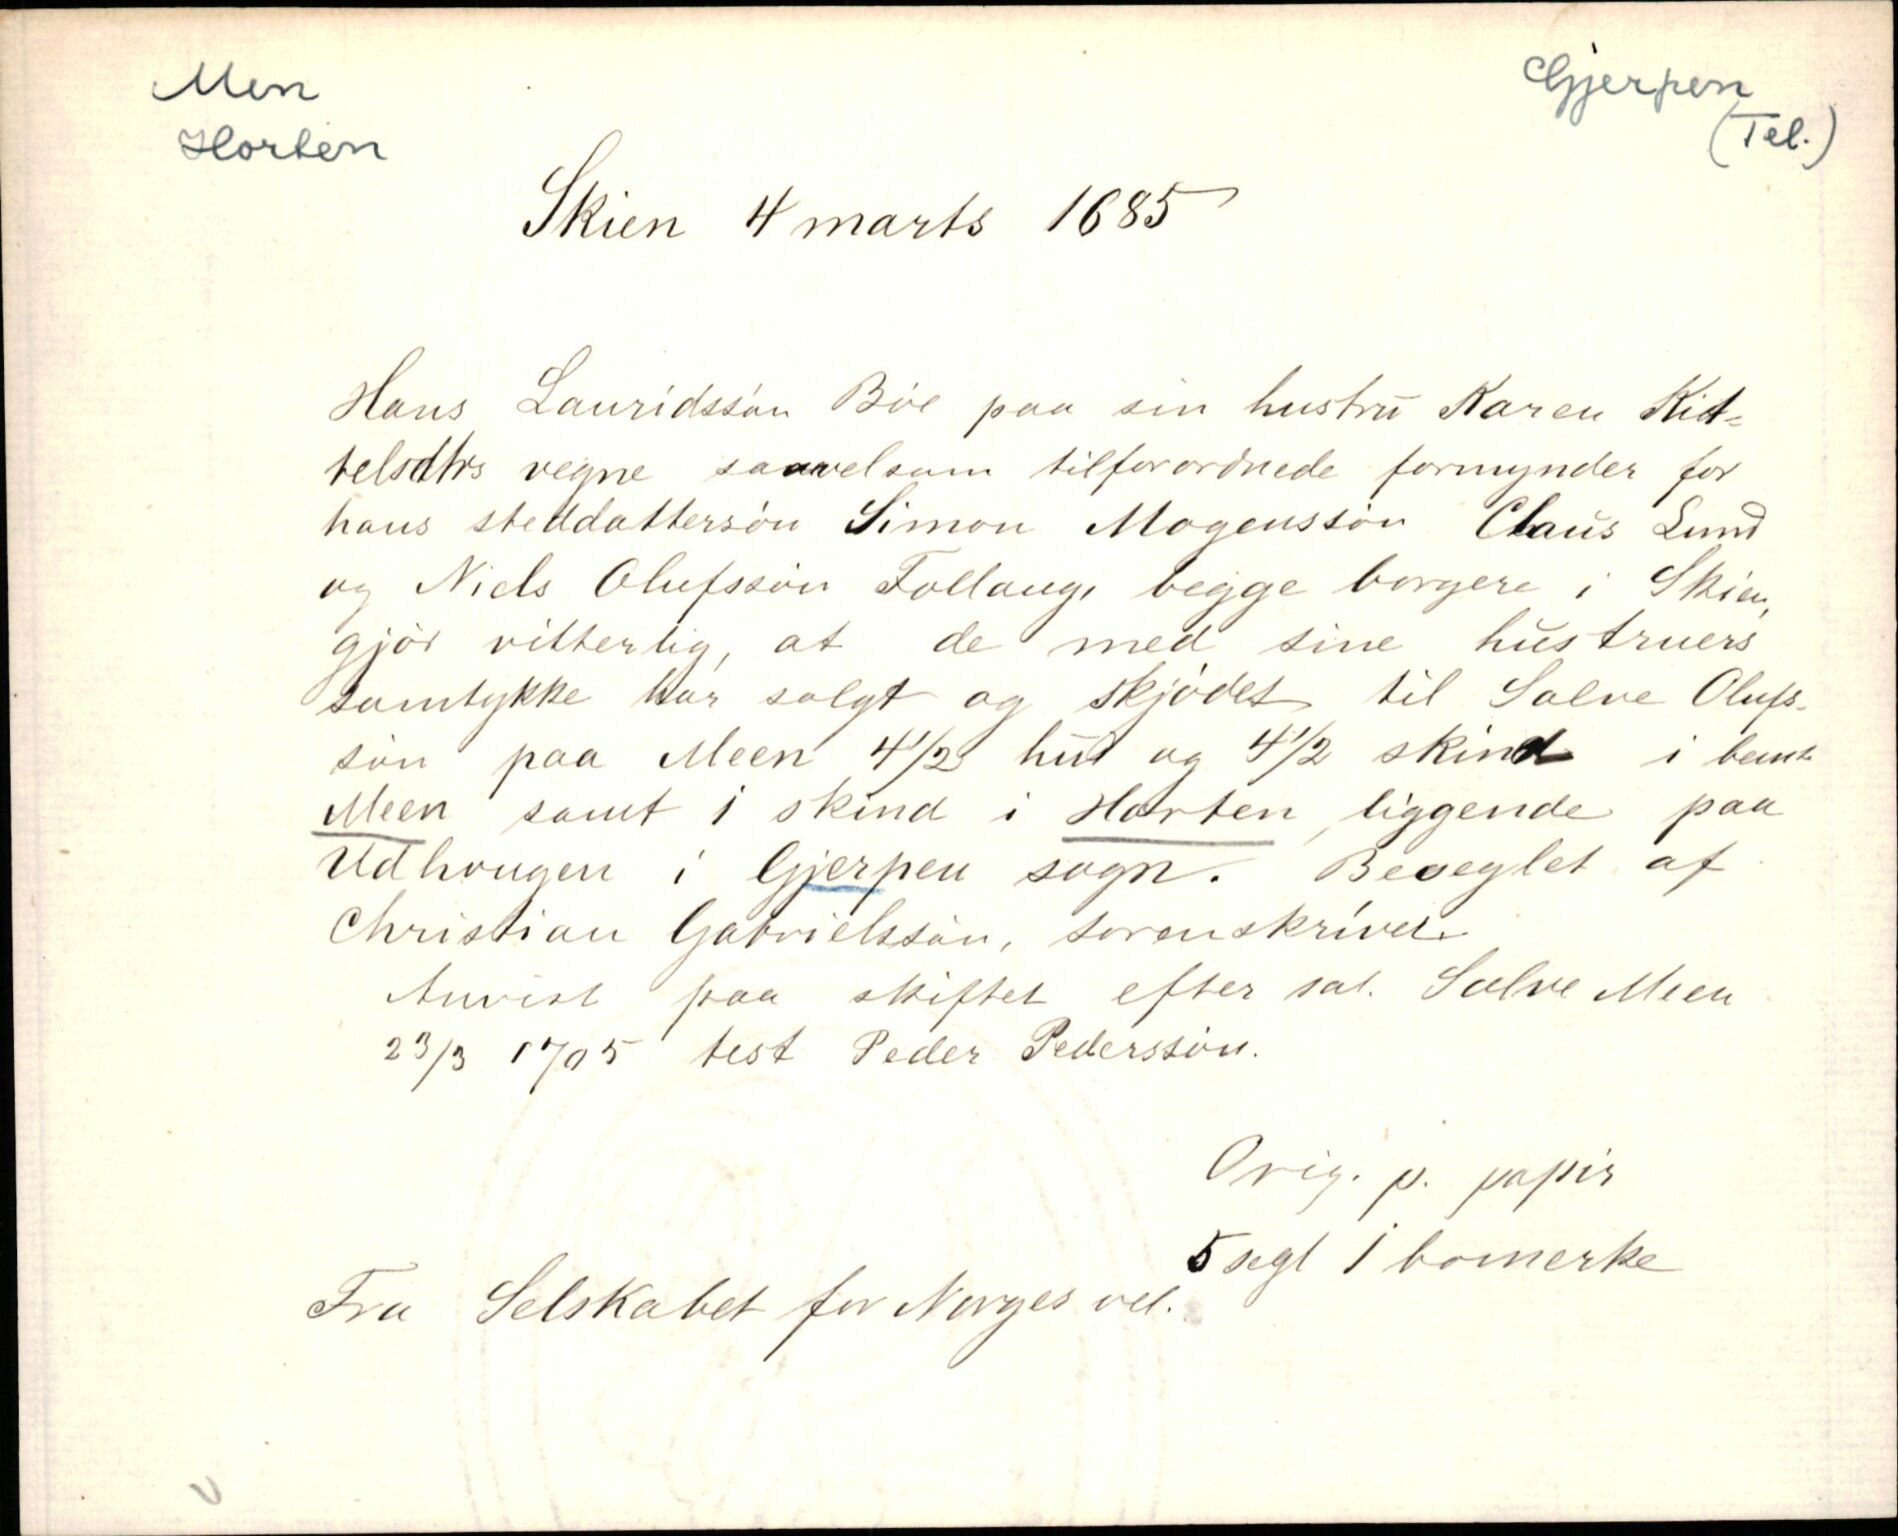 Men
Horten
Gjerpen
(Tel.)
Skien 4 marts 1685
Hans Lauridssön Böe paa sin hustru Karen Kit-
telsdtrs vegne saavelsom tilforordnede formynder for
hans steddattersön Simon Mogenssön Claus Lund
og Niels Olufssön Follaug, begge borgere i Skien,
gjör vitterlig, at de med sine hustruers
samtykke har solgt og skjödet til Solve Olufs-
sön paa Meen 4 1/2 hud og 4 1/2 skind i bemt
Meen samt 1 skind i Horten liggende paa
Udhougen i Gjerpen sogn. Beseglet af
Christian Gabrielssön, sorenskriver.
Anvist paa skiftet efter sal. Solve Meen
23/3 1705 test Peder Pederssön.
Orig. p. papir
5 segl 1 bomerke
Fra Selskabet for Norges vel.